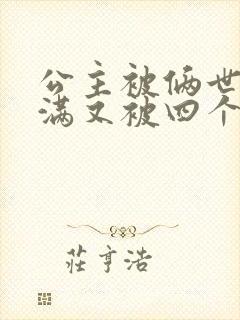 公主被俩世
满又被四个
莊亨浩